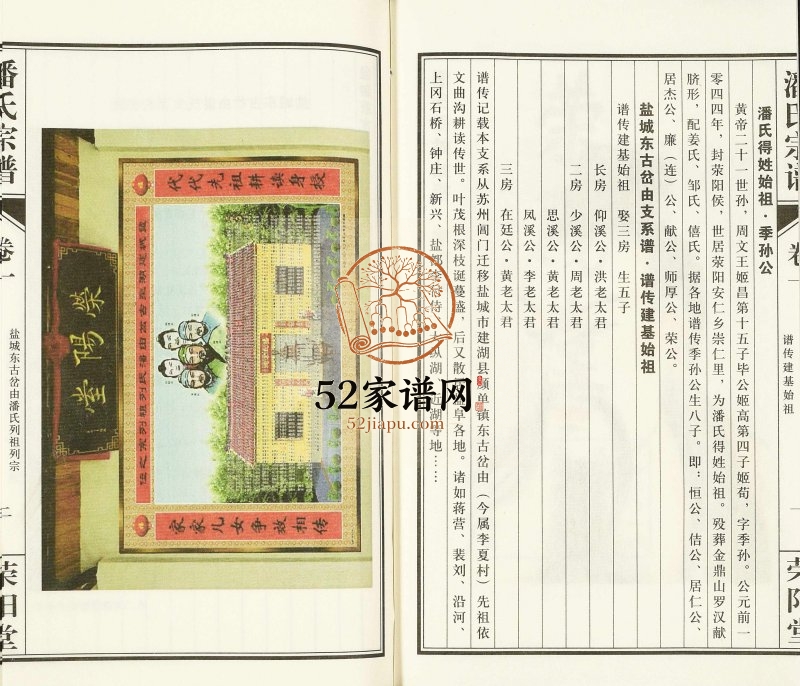 潘氏宗谱
卷一
谱传建基始祖
一
荣阳堂
潘氏得姓始祖·季孙公
黄帝二十一世孙，周文王姬昌第十五子毕公姬高第四子姬荀，字季孙。公元前一
零四四年，封荣阳侯，世居荣阳安仁乡崇仁里，为潘氏得姓始祖。殁葬金鼎山罗汉献
脐形，配姜氏、邹氏、僖氏。据各地谱传季孙公生八子。即：恒公、佶公、居仁公、
居杰公、廉（连）公、献公、师厚公、荣公。
盐城东古岔由支系谱·谱传建基始祖
谱传建基始祖 娶三房 生五子
长房 仰溪公·洪老太君
二房 少溪公·周老太君
思溪公·黄老太君
凤溪公·李老太君
三房 在廷公·黄老太君
谱传记载本支系从苏州阊门迁移盐城市建湖县颜单镇东古岔由（今属李夏村）先祖依
文曲沟耕读传世。叶茂根深枝诞蔓盛。后又散 阜各地。诸如蒋营、裴刘、沿河、
上冈石桥、钟庄、新兴、盐都 侍 纵湖 近湖等地……
52家谱网
52jiapu.com
代代先祖耕读身授
家家儿女争效相传
荣阳堂
潘氏宗谱
卷一
盐城东古岔由潘氏列祖列宗
二
荣阳堂